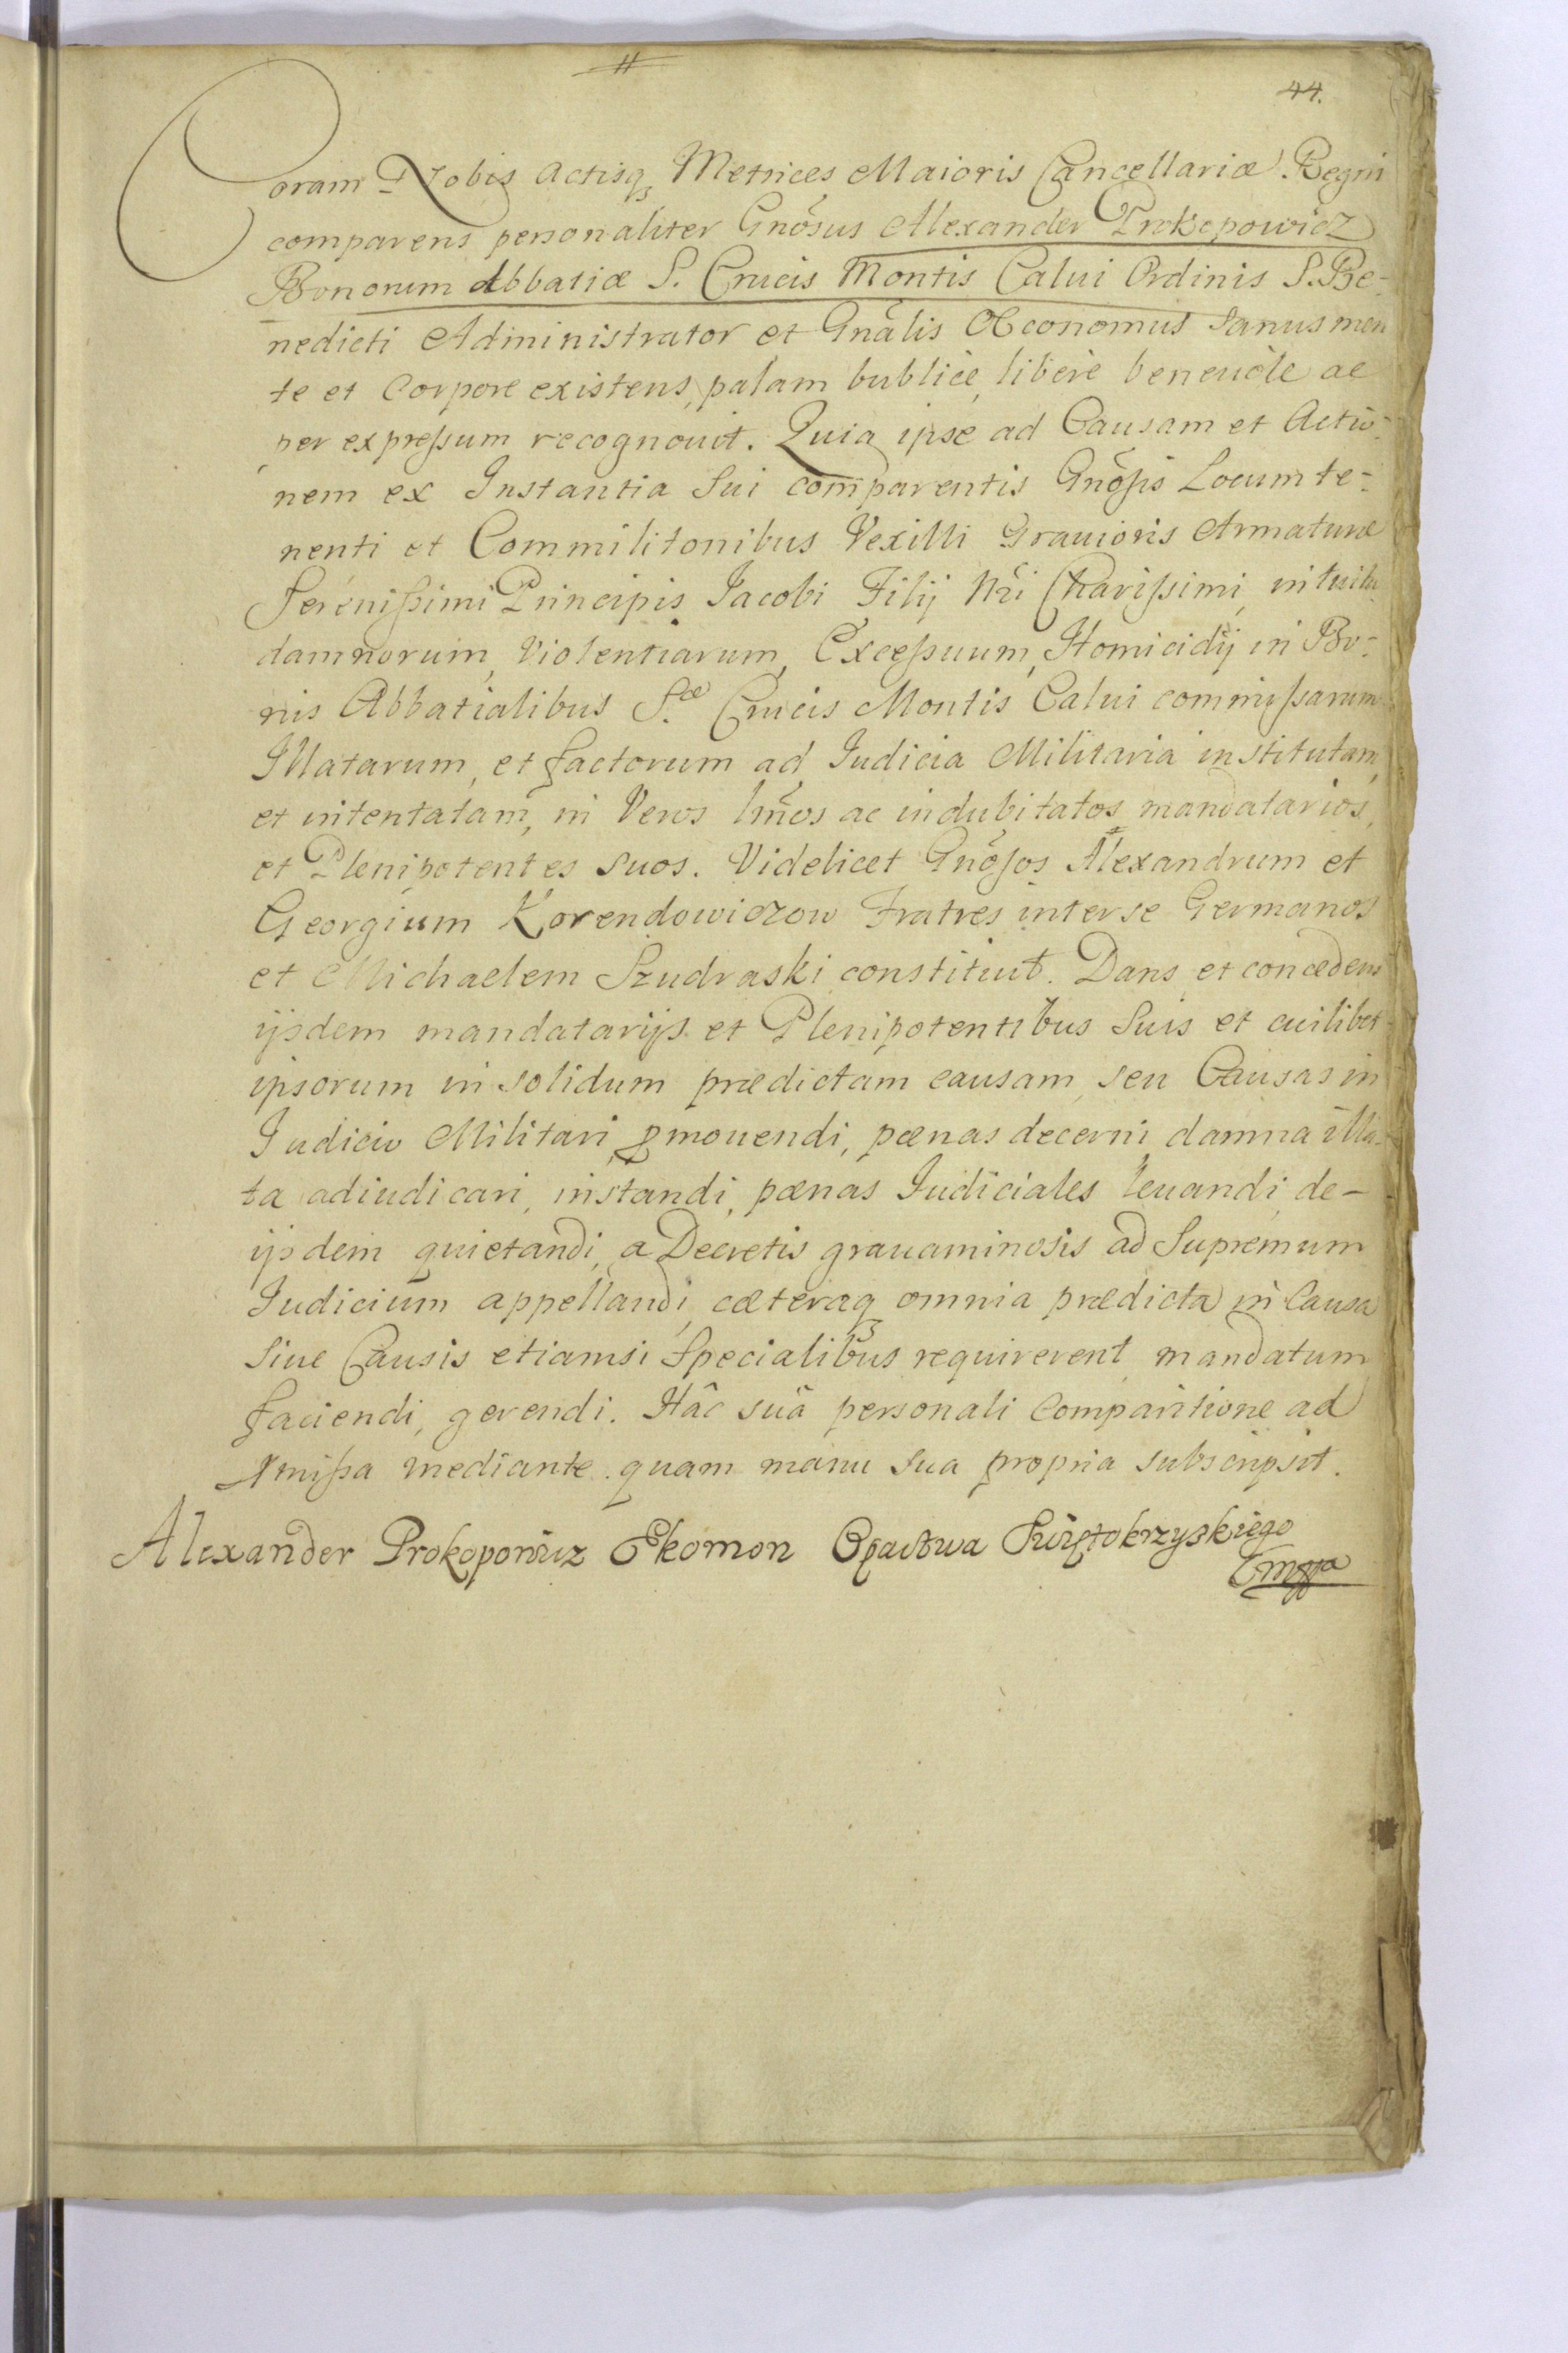 44.
Coram Nobis Actisq₃ Metrices Maioris Cancellariæ Regni
comparens personaliter Gnõsus Alexander Prokopowicz
Bonorum Abbatiæ S. Crucis Montis Calui Ordinis S. Be-
nedicti Administrator et Gnãlis Oeconomus sanus men
te et Corpore existens, palam bublicè, liberè beneuole ac
per expreſsum recognouit. Quia ipse ad Causam et Actio-
nem ex Instantia Sui comparentis Gnõſis Locumte-
nenti et Commilitonibus Vexilli Grauioris Armaturæ
Serenißimi Principis Jacobi Filij Nri Chariſsimi, intuitu
damnorum, Violentiarum, Exceſsuum, Homicidij in Bo-
nis Abbatialibus S.æ Crucis Montis Calui commiſsarum
Illatarum, et factorum ad Iudicia Militaria institutam,
et intentatam, in Veros lmõs ac indubitatos mandatarios,
et Plenipotentes suos. Videlicet Gnõſos Alexandrum et
Georgium Korendowiczow Fratres inter se Germanos
et Michaelem Szudraski constituit. Dans et concedens
ijsdem mandatarijs et Plenipotentibus Suis et cuilibet
ipsorum in solidum prædictam causam, seu Causas in
Iudicio Militari ꝓmouendi, pœnas decerni, damna illa-
ta adiudicari, instandi, pœnas Iudiciales leuandi, de-
ijsdem quietandi, a Decretis grauaminosis ad Supremum
Iudicium appellandi, cæteraq₃ omnia prædicta in Causa
Siue Causis etiamsi Specialibus requirerent mandatum
faciendi, gerendi. Hâc suâ personali Comparitione ad
pmißa mediante. quam manu sua propria subscripsit.
Alexander Prokopowicz Ekomon Opactwa Swiętokrzyskiego
mppa